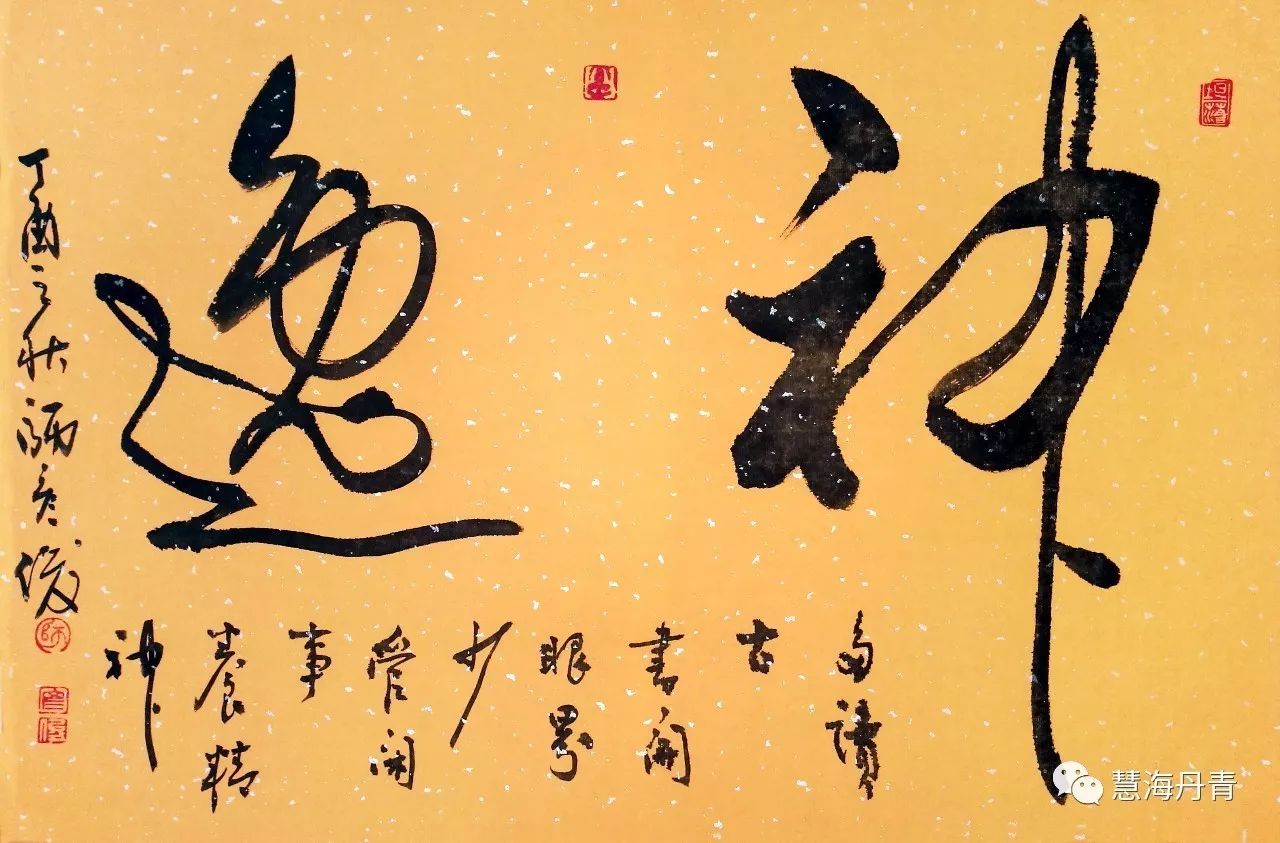 神逸
多讀
古
書開
眼界
少
管閑
事
養精
神
丁酉之秋
慧海丹青